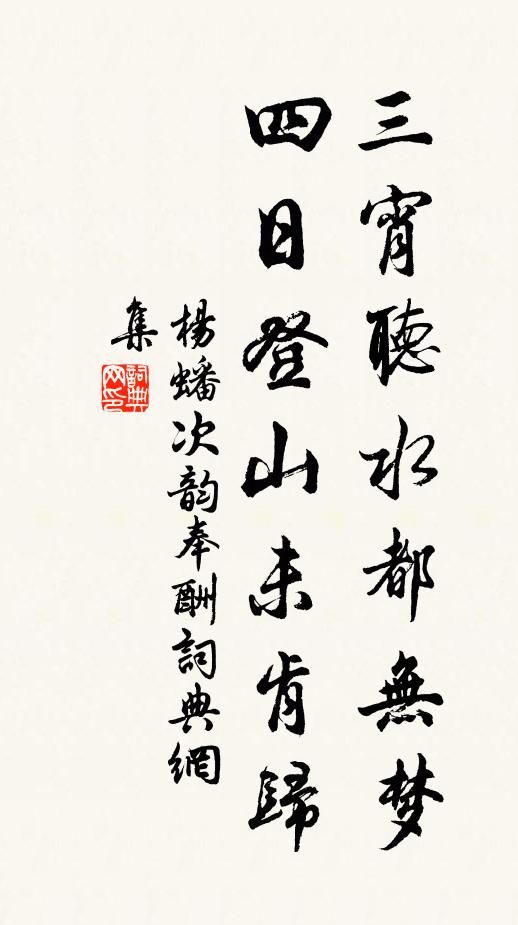 三宵聽水都無梦
四日登山未肯歸
楊蟠次韵奉酬詞典網
集
詞典
网印